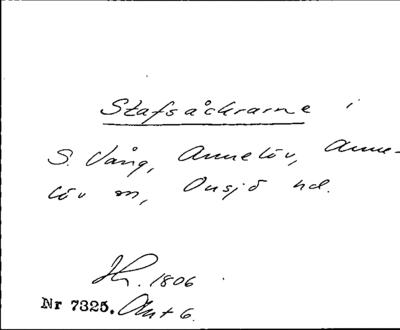 Stafsåckrarne i
S. Vång, Annelöv, Anne-
löv sn, Onsjö hd.
1806
Nr 7325. Akt 6.